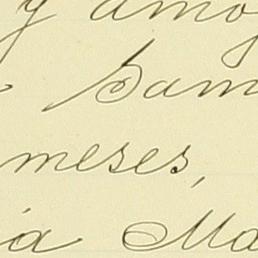 y amo
Sam
meses,
ia Ma